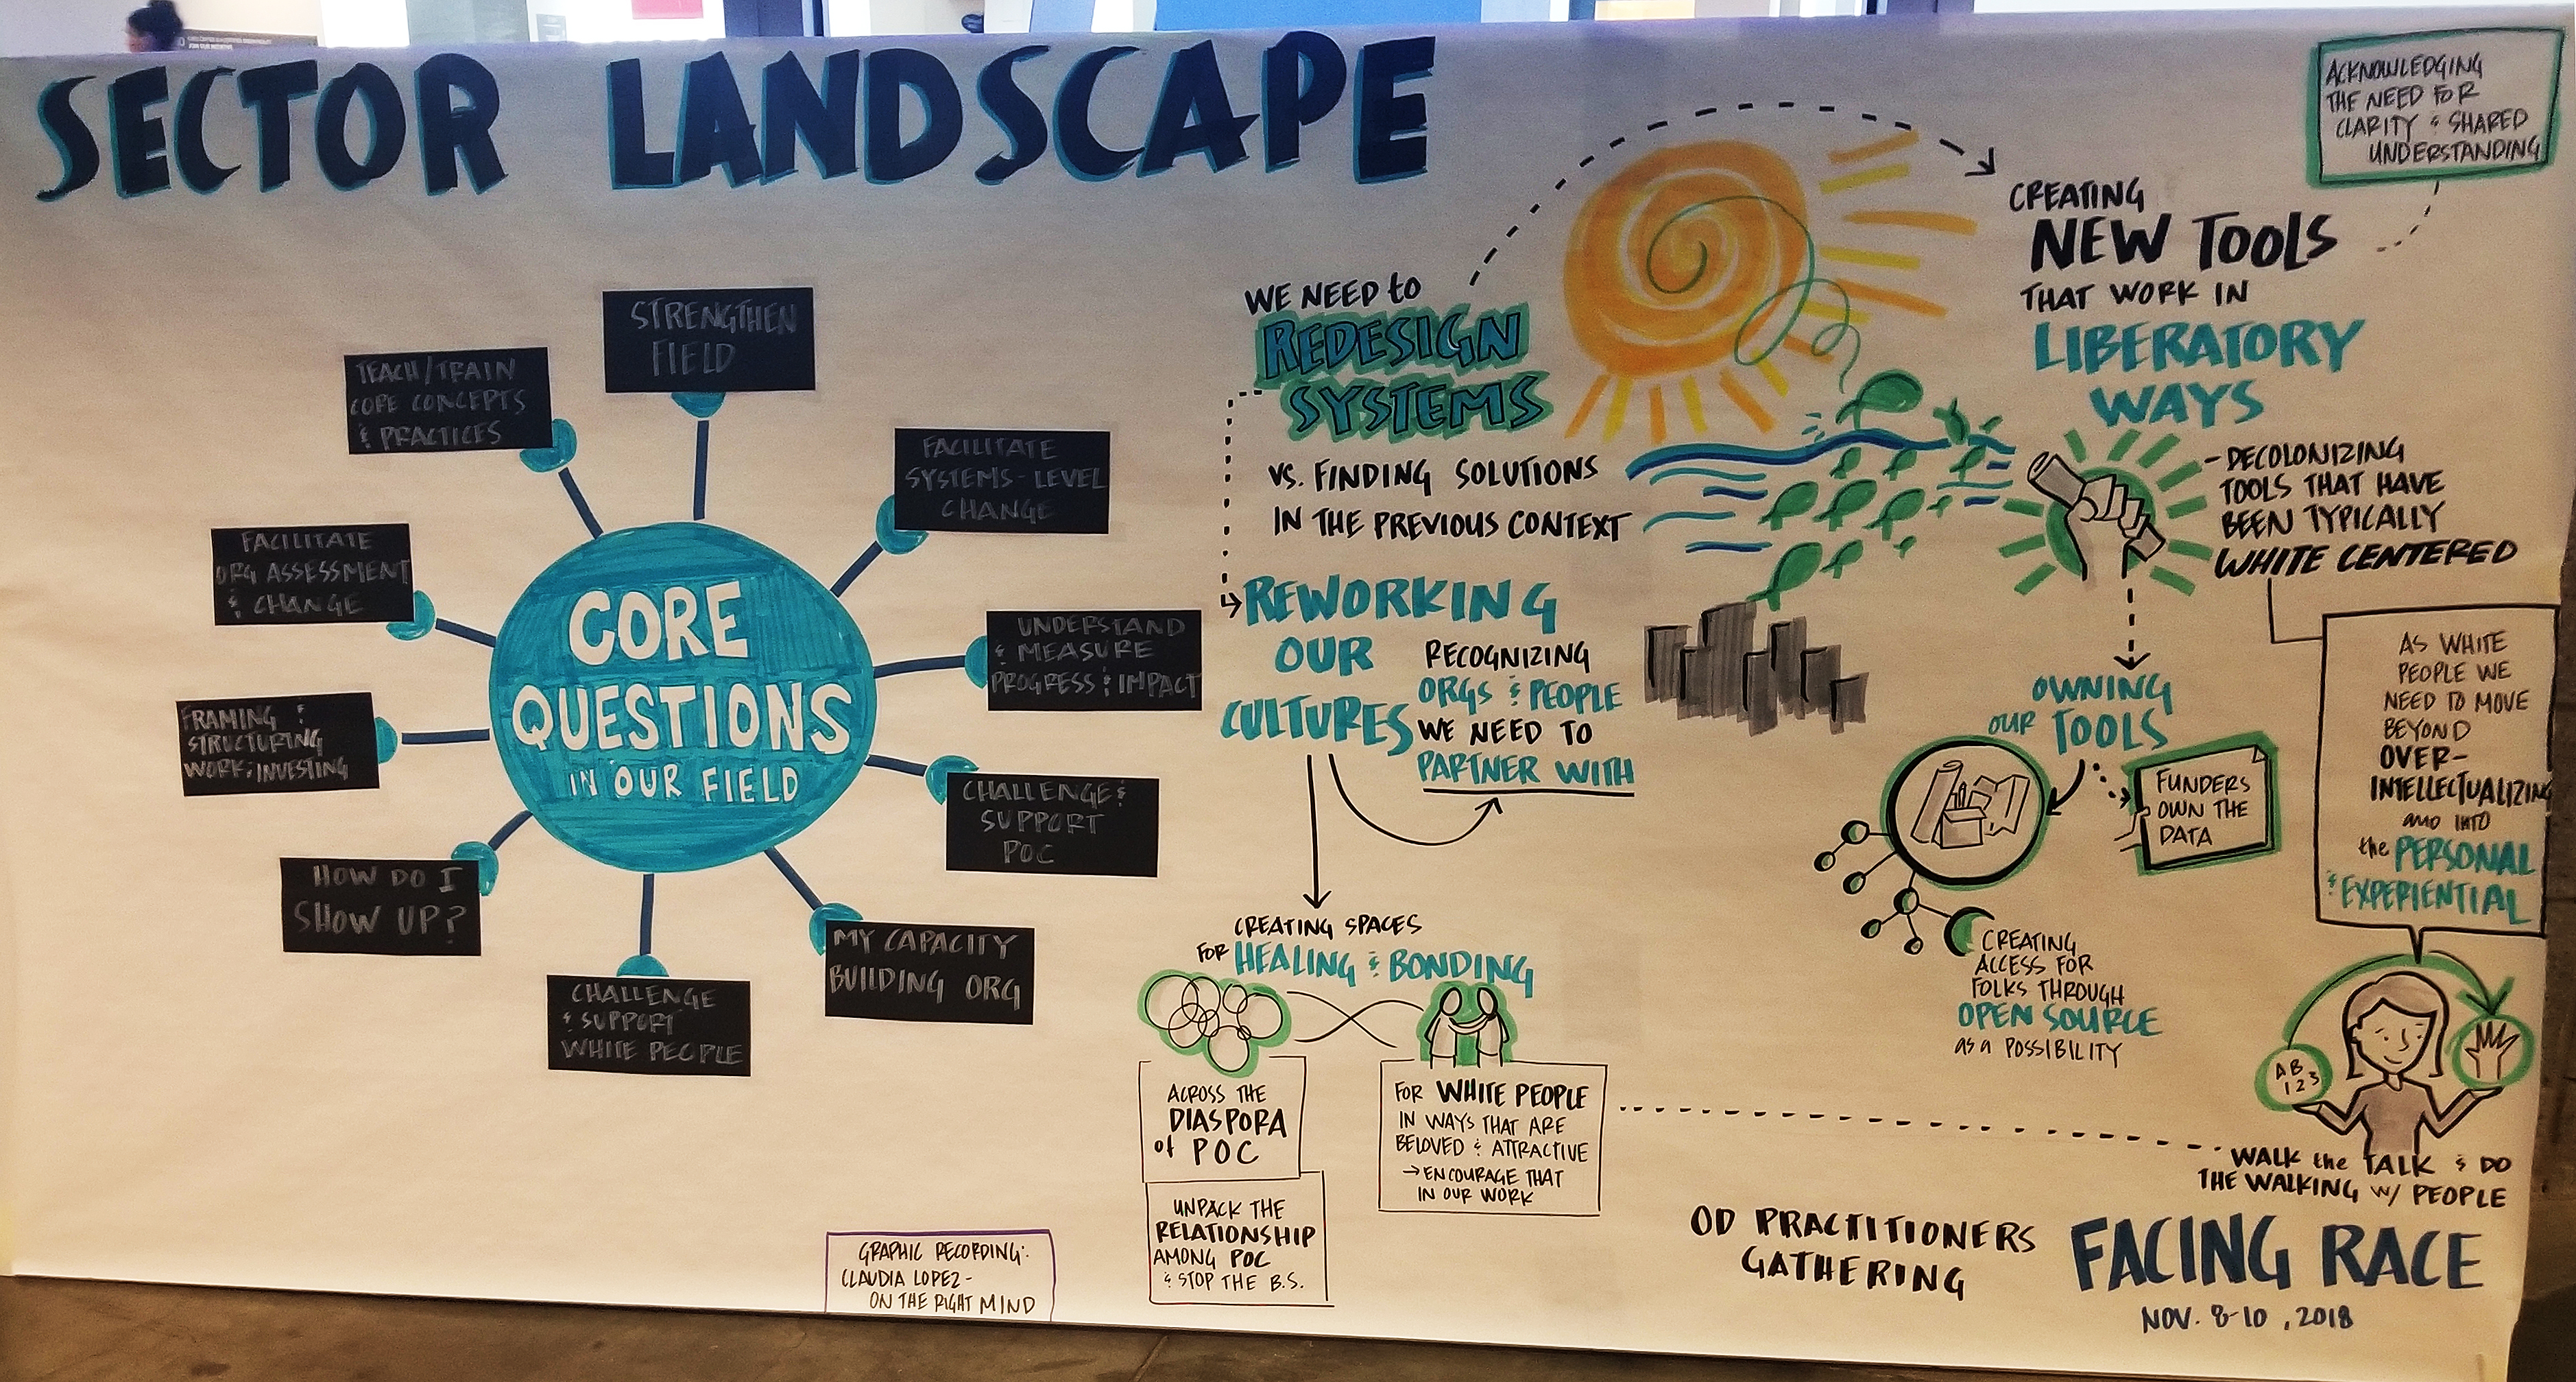 SECTOR LANDSCAPE
STRENGTHEN
FIELD
FACILITATE
SYSTEMS-LEVEL
CHANGE
UNDERSTAND
& MEASURE
PROGRESS & IMPACT
CHALLENGE &
SUPPORT
POC
MY CAPACITY
BUILDING ORG
CHALLENGE
& SUPPORT
WHITE PEOPLE
HOW DO I
SHOW UP?
FRAMING &
STRUCTURING
WORK & INVESTING
FACILITATE
ORG ASSESSMENT
& CHANGE
TEACH/TRAIN
CORE CONCEPTS
& PRACTICES
CORE
QUESTIONS
IN OUR FIELD
WE NEED to
REDESIGN
SYSTEMS
VS. FINDING SOLUTIONS
IN THE PREVIOUS CONTEXT
REWORKING
OUR
CULTURES
RECOGNIZING
ORGS & PEOPLE
WE NEED TO
PARTNER WITH
CREATING SPACES
FOR HEALING & BONDING
ACROSS THE
DIASPORA
of POC
UNPACK THE
RELATIONSHIP
AMONG POC
& STOP THE B.S.
FOR WHITE PEOPLE
IN WAYS THAT ARE
BELOVED & ATTRACTIVE
→ ENCOURAGE THAT
IN OUR WORK
ACKNOWLEDGING
THE NEED FOR
CLARITY & SHARED
UNDERSTANDING
CREATING
NEW TOOLS
THAT WORK IN
LIBERATORY
WAYS
- DECOLONIZING
TOOLS THAT HAVE
BEEN TYPICALLY
WHITE CENTERED
AS WHITE
PEOPLE WE
NEED TO MOVE
BEYOND
OVER-
INTELLECTUALIZING
AND INTO
the PERSONAL
& EXPERIENTIAL
OWNING
OUR TOOLS
FUNDERS
OWN THE
DATA
CREATING
ACCESS FOR
FOLKS THROUGH
OPEN SOURCE
as a POSSIBILITY
AB
123
WALK the TALK & DO
THE WALKING w/ PEOPLE
OD PRACTITIONERS
GATHERING
FACING RACE
NOV. 8-10, 2018
GRAPHIC RECORDING:
CLAUDIA LOPEZ -
ON THE RIGHT MIND